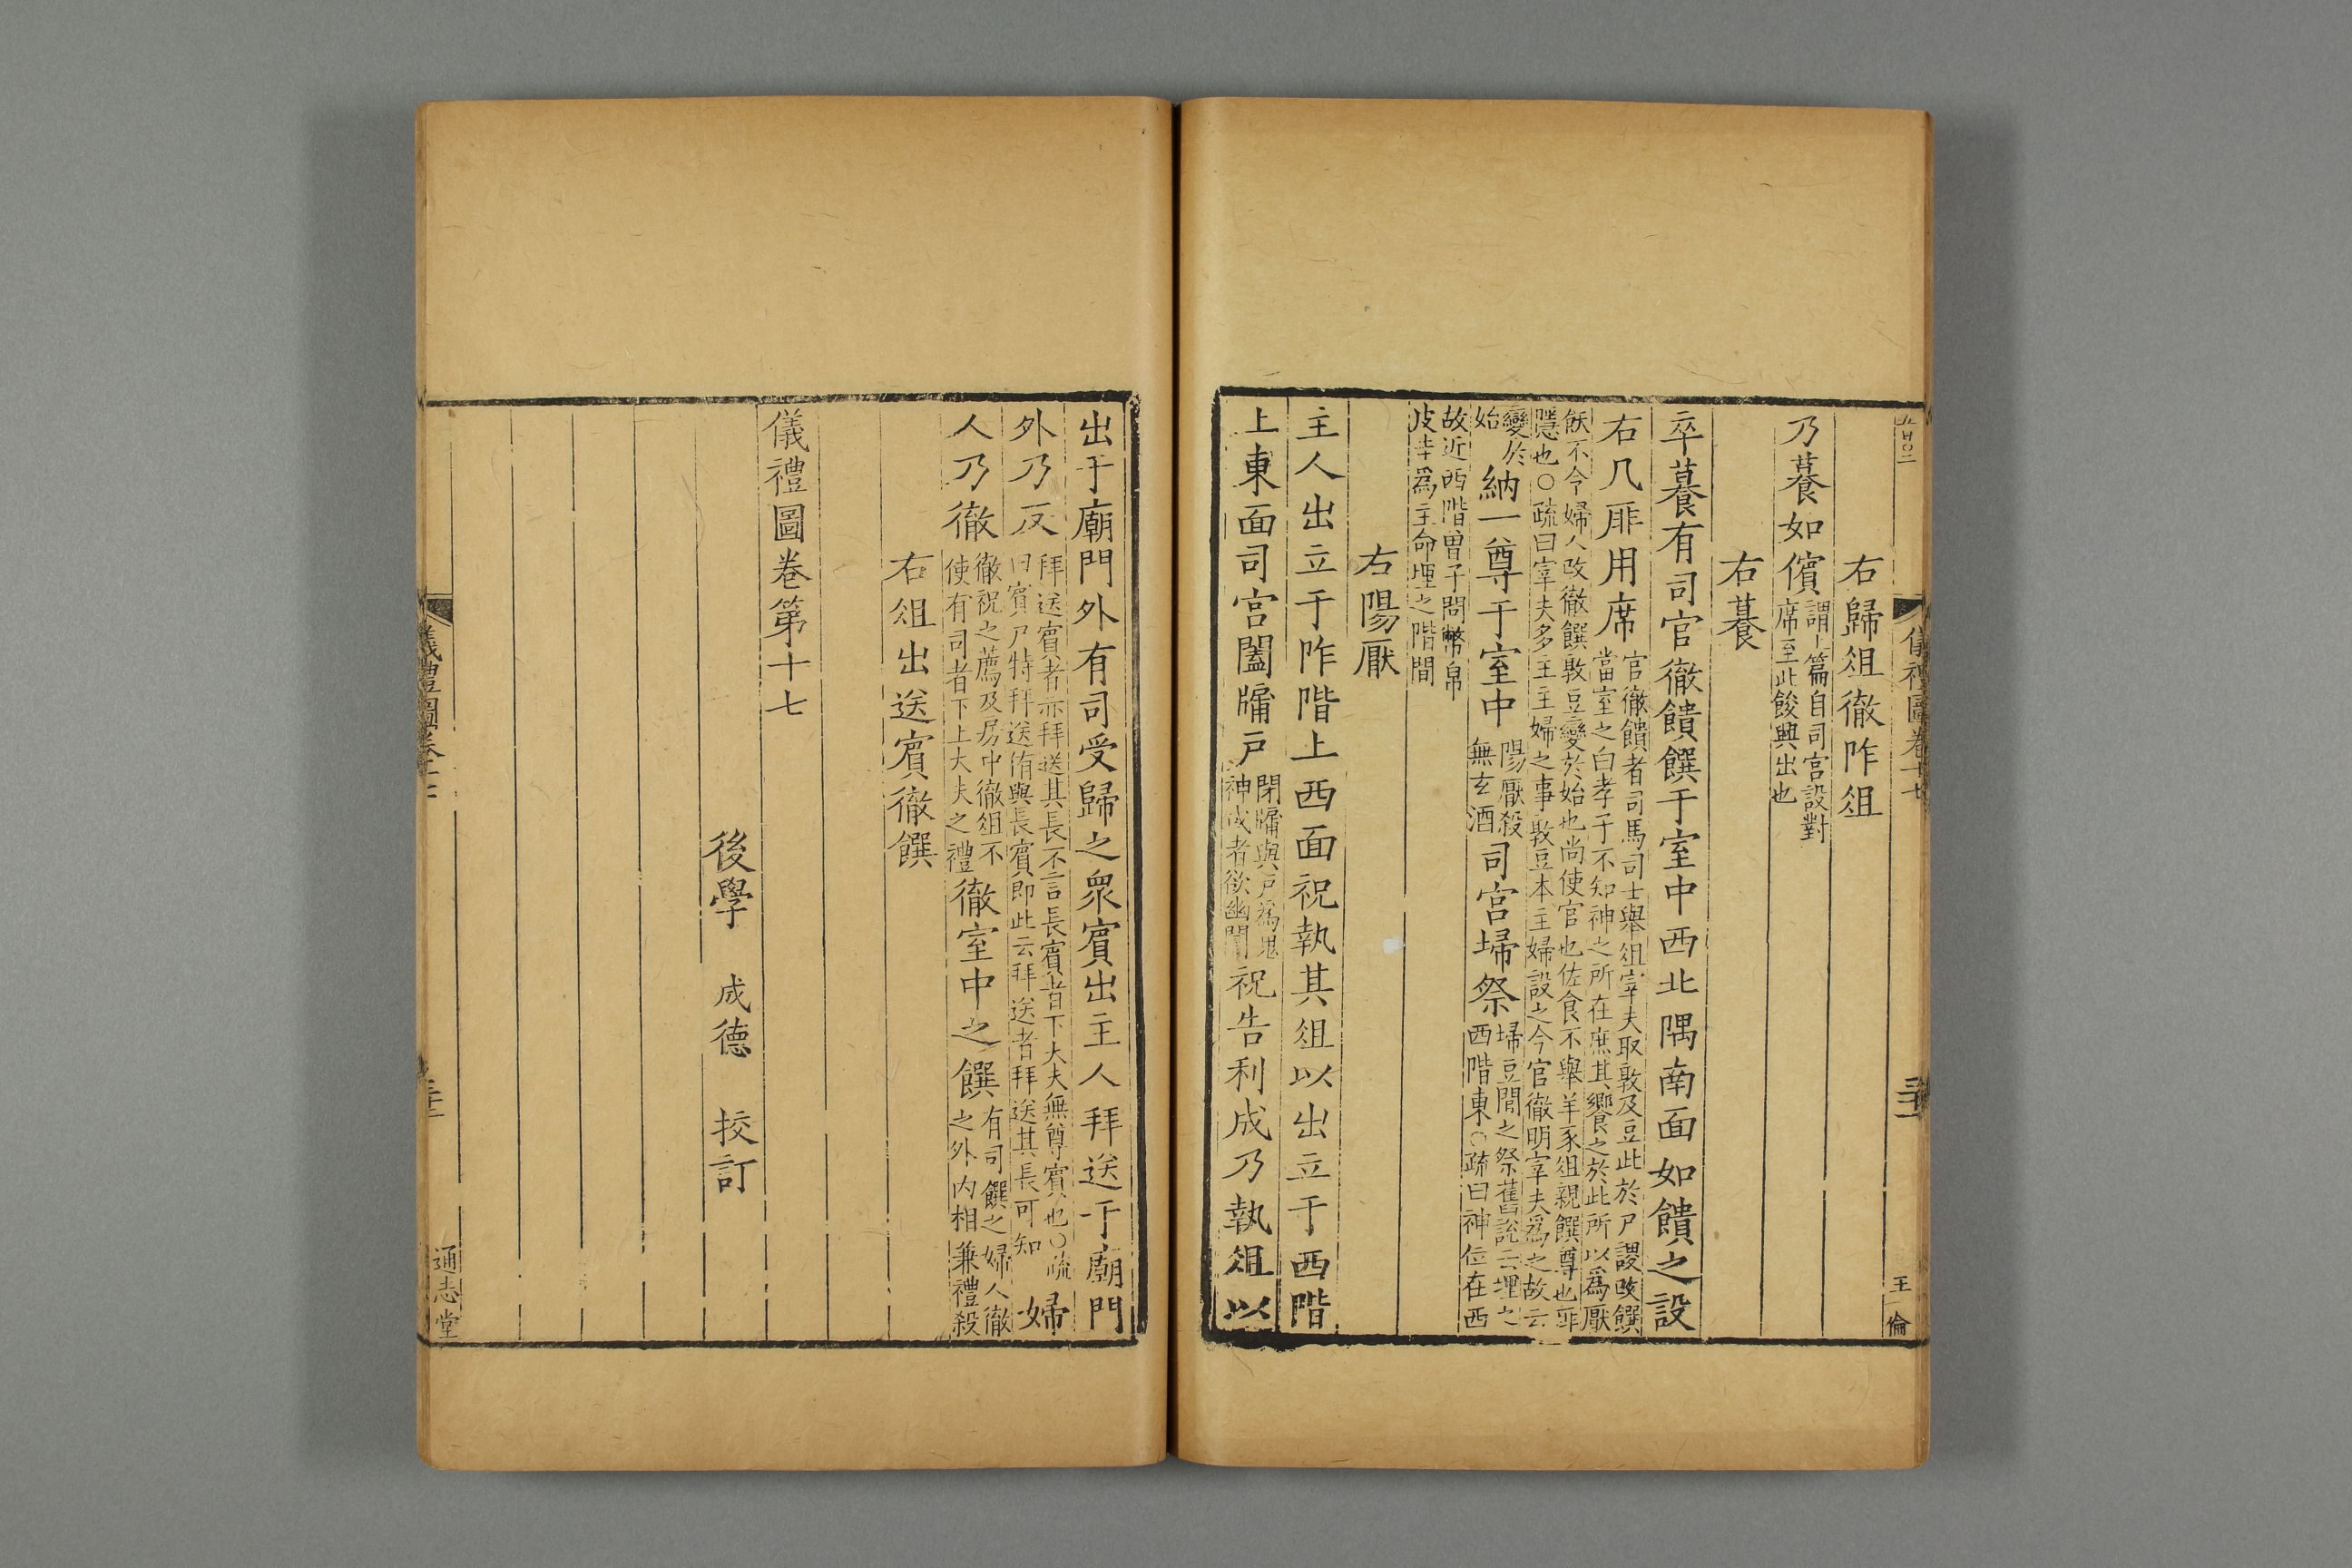 儀禮圖卷十七
王倫
右歸俎徹阼俎
乃䭕如儐謂上篇自司宮設對席至此餕興出也
右䭕
卒䭕有司官徹饋饌于室中西北隅南面如饋之設
右几厞用席官徹饋者司馬司士舉俎宰夫取敦及豆此於尸謖改饌當室之白孝子不知神之所在庶其饗之於此所以爲厭
飫不令婦人改徹饌敦豆變於始也尚使官也佐食不舉羊豕俎親饌尊也厞隱也○疏曰宰夫多主主婦之事敦豆本主婦設之今官徹明宰夫爲之故云
變於始納一尊于室中陽厭殺無玄酒司宮埽祭埽豆閒之祭舊說云埋之西階東○疏曰神位在西
故近西階曾子問幣帛皮圭爲主命埋之階間
右陽厭
主人出立于阼階上西面祝執其俎以出立于西階
上東面司宮闔牖戸閉牖與戸爲鬼神或者欲幽闇祝告利成乃執俎以
出于廟門外有司受歸之衆賓出主人拜送于廟門
外乃反拜送賓者亦拜送其長不言長賓者下大夫無尊賓也○疏曰賓尸特拜送侑與長賓即此云拜送者拜送其長可知婦
人乃徹徹祝之薦及房中徹俎不使有司者下上大夫之禮徹室中之饌有司饌之婦人徹之外内相兼禮殺
右俎出送賓徹饌
儀禮圖卷第十七
後學 成德 挍訂
儀禮圖卷十七
通志堂